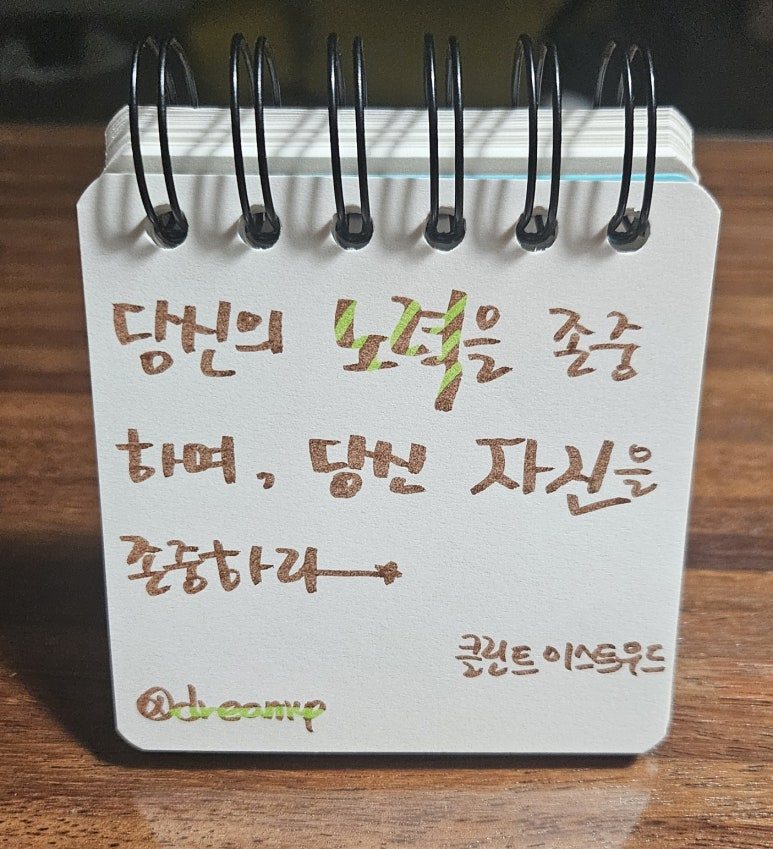 당신의 노력을 존중
하며, 당신 자신을
존중하라
클린트 이스트우드
@dreamup